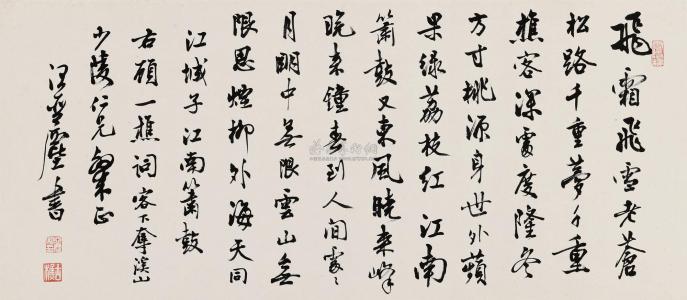 飛霜飛雪老蒼
松路千重夢千重
樵客深處度隆冬
方寸桃源身世外蘋
果綠荔枝紅江南
簫鼓又東風曉來峰
晚來鐘春到人間處〻
月明中無限雲山無
限思煙柳外海天同
江城子江南簫鼓
右顧一樵詞客下奪溪山
少陵仁兄粲正
書